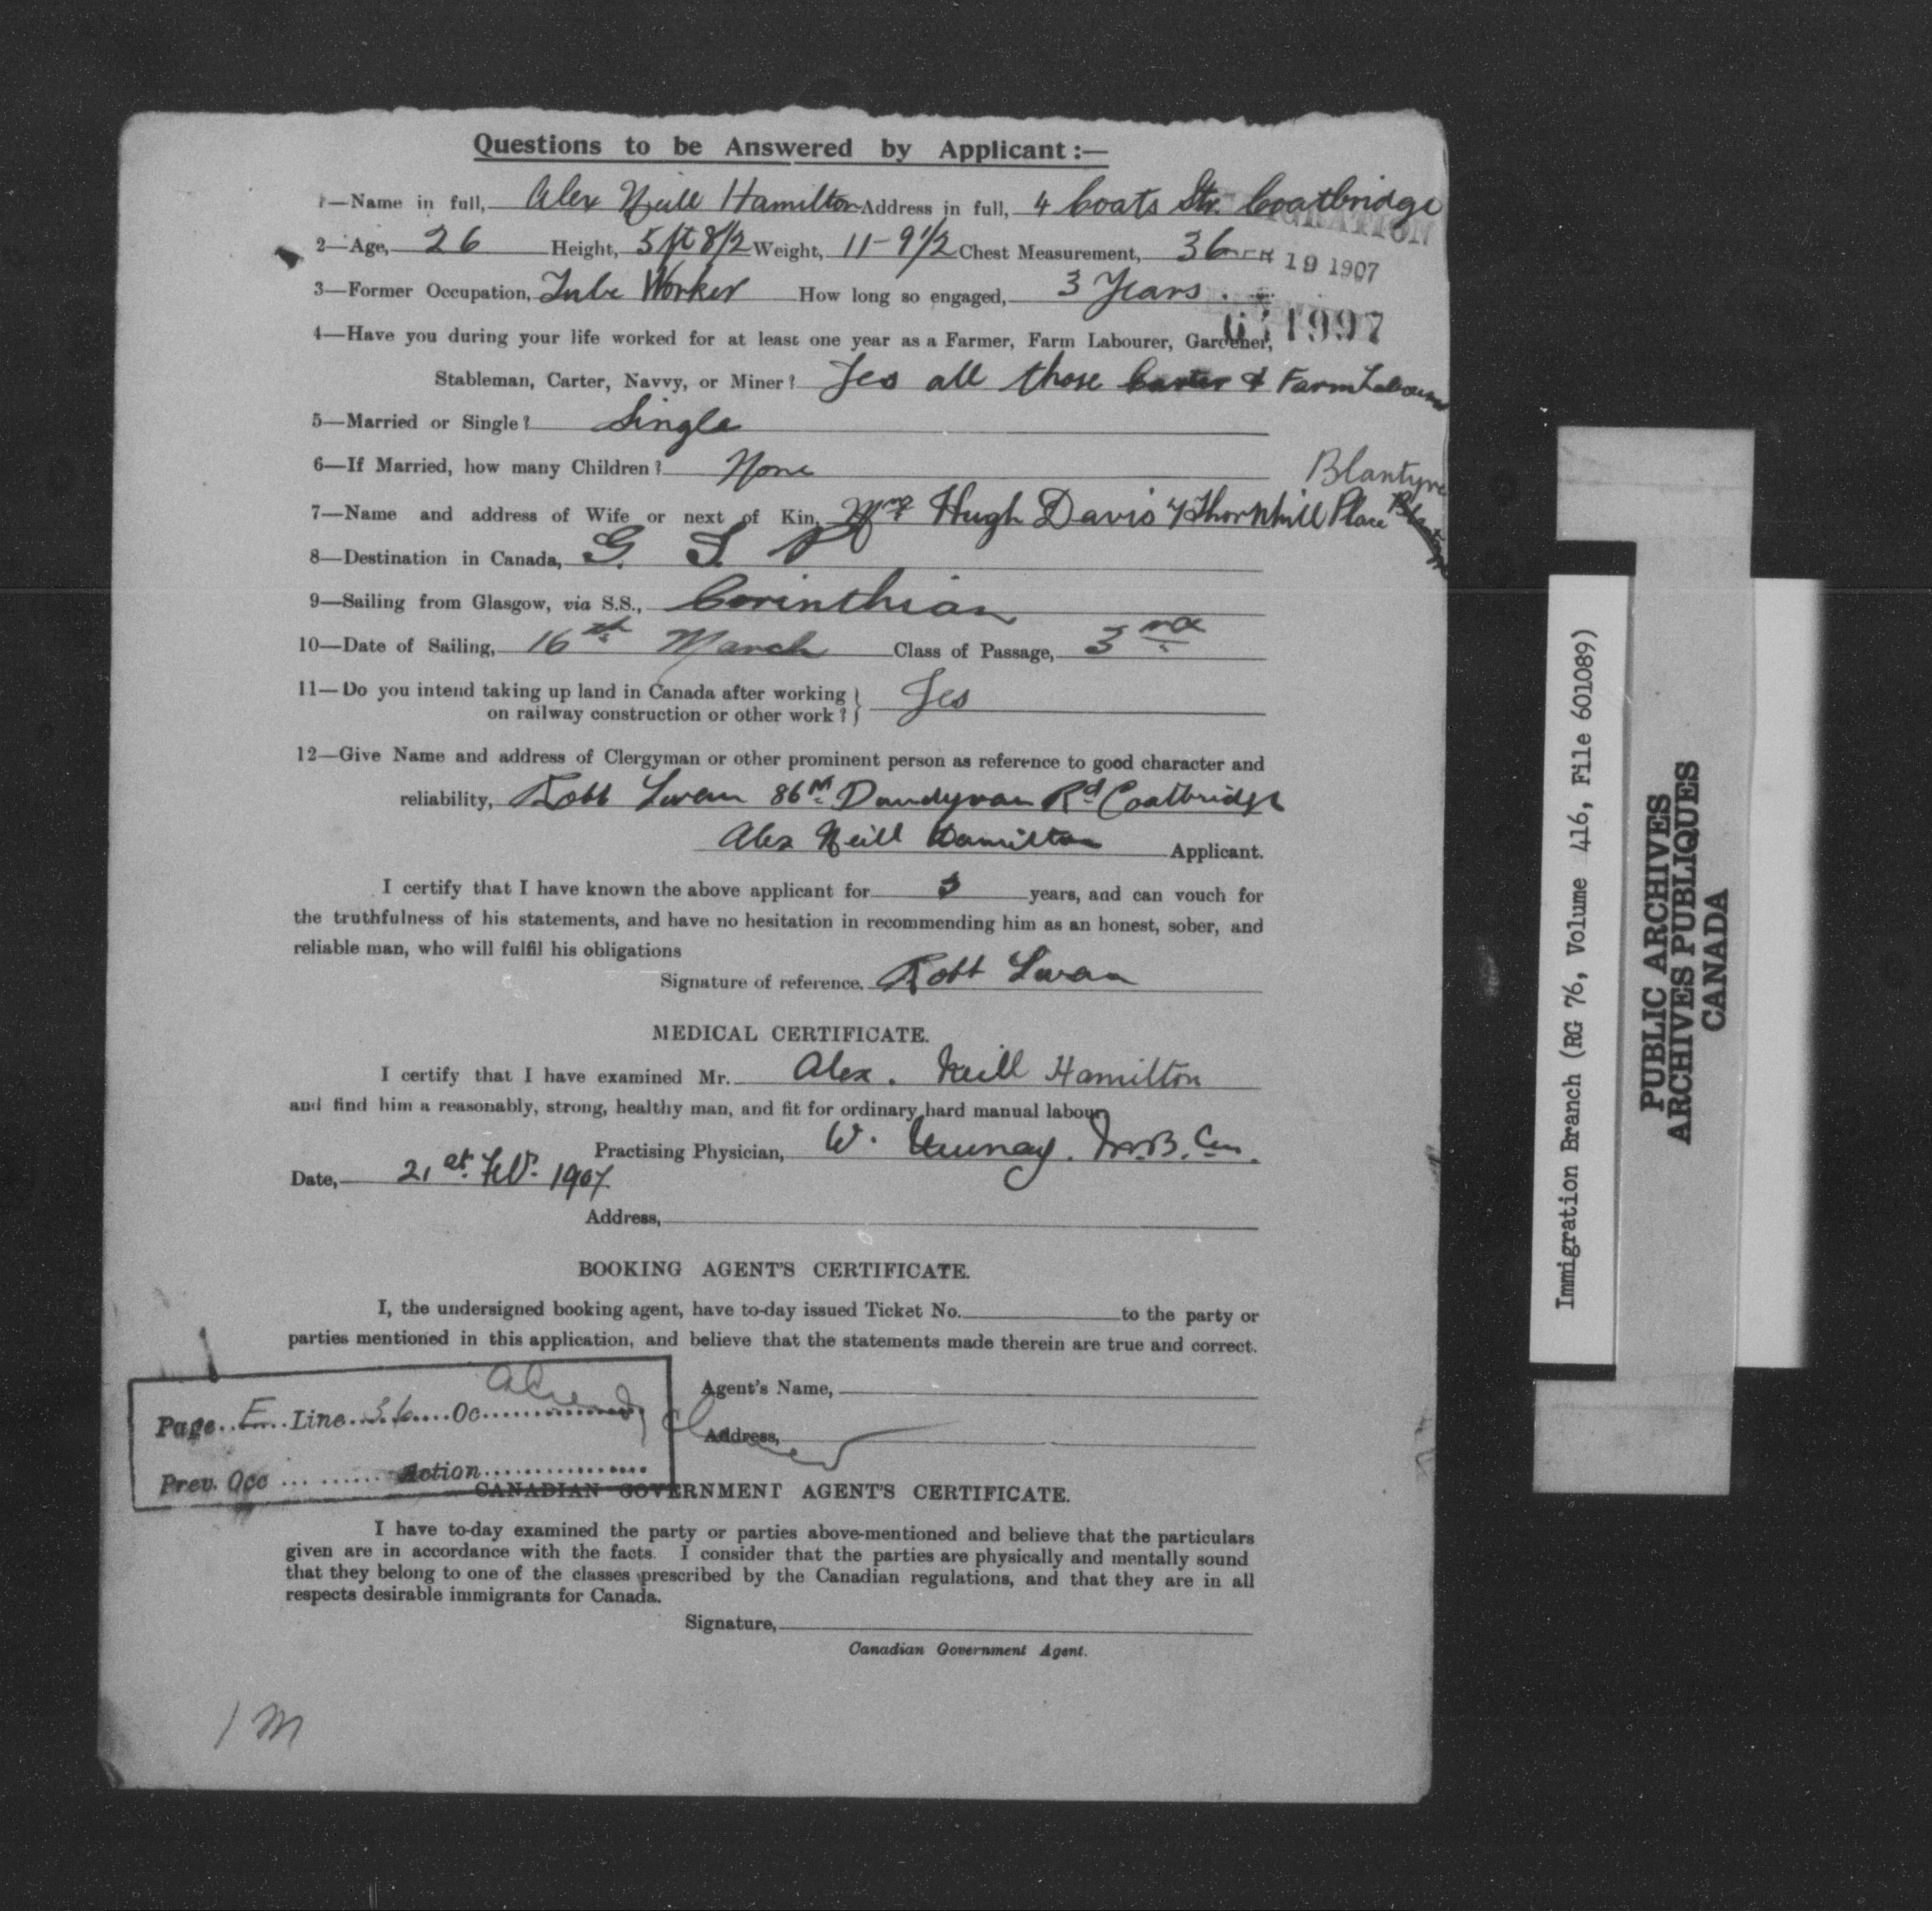 Questions to be Answered by Applicant :—
1—Name in full, Alex Neill Hamilton Address in full, 4 Coats Str. Coatbridge
2—Age, 26 Height, 5 ft 8 1/2 Weight, 11-9 1/2 Chest Measurement, 36
19 1907
3—Former Occupation, Tube Worker How long so engaged, 3 Years.
1997
4—Have you during your life worked for at least one year as a Farmer, Farm Labourer, Gardener,
Stableman, Carter, Navvy, or Miner? Yes all those Carter & Farm Labourer
5—Married or Single? Single
6—If Married, how many Children? None
Blantyre
7—Name and address of Wife or next of Kin, Mrs Hugh Davis 4 Thornhill Place
8—Destination in Canada, G. T. P
9—Sailing from Glasgow, via S.S., Corinthian
10—Date of Sailing, 16th March Class of Passage, 3rd
11—Do you intend taking up land in Canada after working
on railway construction or other work? } Yes
12—Give Name and address of Clergyman or other prominent person as reference to good character and
reliability, Robt Swan 86 Dundyvan Rd Coatbridge
Alex Neill Hamilton Applicant.
I certify that I have known the above applicant for 3 years, and can vouch for
the truthfulness of his statements, and have no hesitation in recommending him as an honest, sober, and
reliable man, who will fulfil his obligations
Signature of reference. Robt Swan
MEDICAL CERTIFICATE.
I certify that I have examined Mr. Alex. Neill Hamilton
and find him a reasonably, strong, healthy man, and fit for ordinary hard manual labour
Practising Physician, W. Murray. M.B. Cm.
Date, 21st Feb. 1907
Address,
BOOKING AGENT'S CERTIFICATE.
I, the undersigned booking agent, have to-day issued Ticket No. to the party or
parties mentioned in this application, and believe that the statements made therein are true and correct.
Agent's Name,
Page..E..Line..36....Oc................
Address,
Prev. Occ .......... Action................
CANADIAN GOVERNMENT AGENT'S CERTIFICATE.
I have to-day examined the party or parties above-mentioned and believe that the particulars
given are in accordance with the facts. I consider that the parties are physically and mentally sound
that they belong to one of the classes prescribed by the Canadian regulations, and that they are in all
respects desirable immigrants for Canada.
Signature,
Canadian Government Agent.
1 M
Immigration Branch (RG 76, Volume 416, File 601089)
PUBLIC ARCHIVES
ARCHIVES PUBLIQUES
CANADA